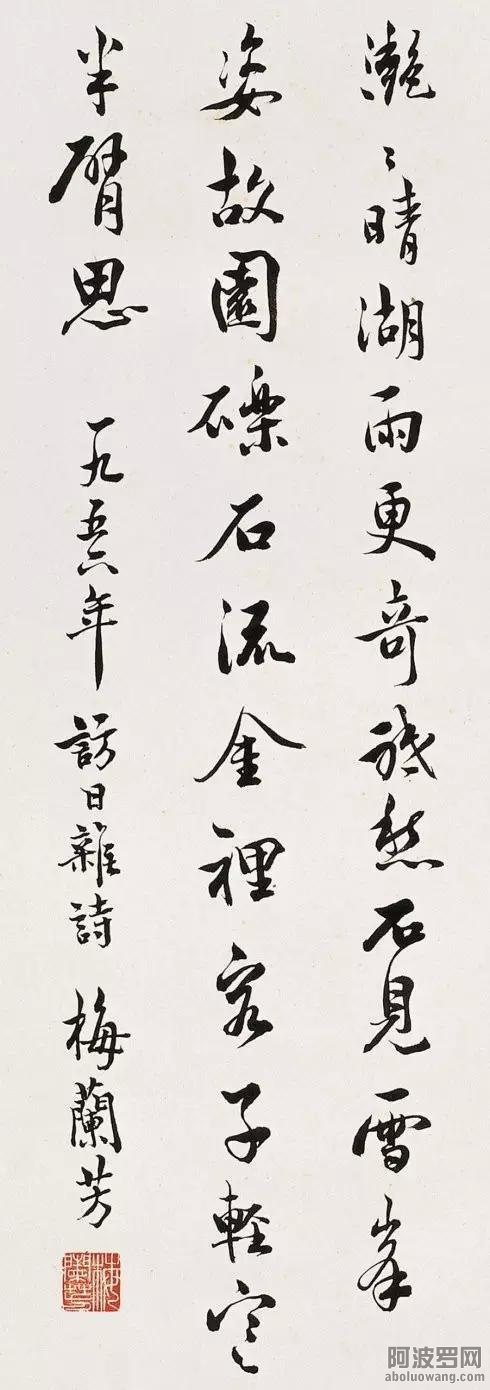 灧〻晴湖雨更奇祗愁不見雪峯
姿故園礫石流金裡客子輕寒
半臂思 一九五六年 訪日雜詩 梅蘭芳
梅蘭芳
阿波罗网
aboluowang.com